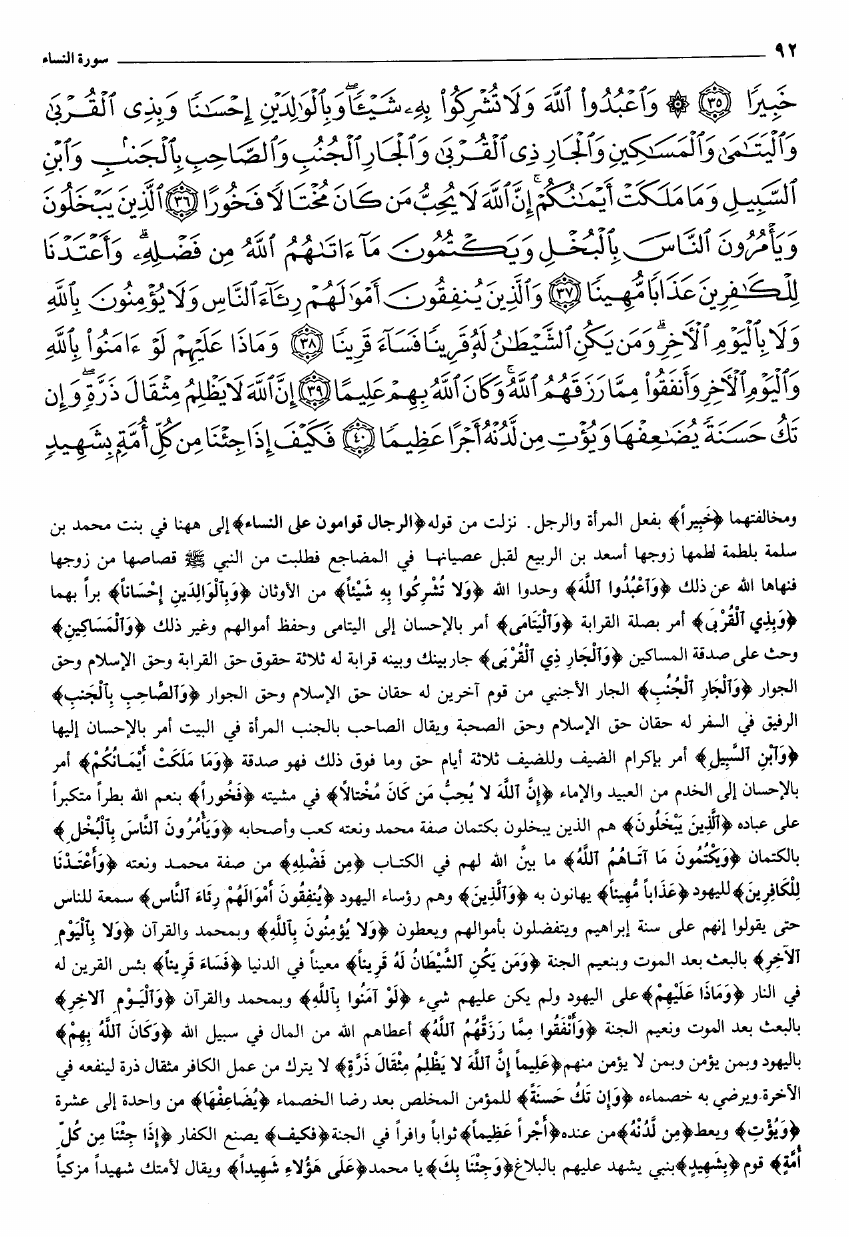 ٩٢ سورة النساء
خَبِيرًا ﴿٣٥﴾ ۞ وَٱعْبُدُوا۟ ٱللَّهَ وَلَا تُشْرِكُوا۟ بِهِۦ شَيْـًٔا ۖ وَبِٱلْوَٰلِدَيْنِ إِحْسَـٰنًا وَبِذِى ٱلْقُرْبَىٰ
وَٱلْيَتَـٰمَىٰ وَٱلْمَسَـٰكِينِ وَٱلْجَارِ ذِى ٱلْقُرْبَىٰ وَٱلْجَارِ ٱلْجُنُبِ وَٱلصَّاحِبِ بِٱلْجَنۢبِ وَٱبْنِ
ٱلسَّبِيلِ وَمَا مَلَكَتْ أَيْمَـٰنُكُمْ ۗ إِنَّ ٱللَّهَ لَا يُحِبُّ مَن كَانَ مُخْتَالًا فَخُورًا ﴿٣٦﴾ ٱلَّذِينَ يَبْخَلُونَ
وَيَأْمُرُونَ ٱلنَّاسَ بِٱلْبُخْلِ وَيَكْتُمُونَ مَآ ءَاتَىٰهُمُ ٱللَّهُ مِن فَضْلِهِۦ ۗ وَأَعْتَدْنَا
لِلْكَـٰفِرِينَ عَذَابًا مُّهِينًا ﴿٣٧﴾ وَٱلَّذِينَ يُنفِقُونَ أَمْوَٰلَهُمْ رِئَآءَ ٱلنَّاسِ وَلَا يُؤْمِنُونَ بِٱللَّهِ
وَلَا بِٱلْيَوْمِ ٱلْـَٔاخِرِ ۗ وَمَن يَكُنِ ٱلشَّيْطَـٰنُ لَهُۥ قَرِينًا فَسَآءَ قَرِينًا ﴿٣٨﴾ وَمَاذَا عَلَيْهِمْ لَوْ ءَامَنُوا۟ بِٱللَّهِ
وَٱلْيَوْمِ ٱلْـَٔاخِرِ وَأَنفَقُوا۟ مِمَّا رَزَقَهُمُ ٱللَّهُ ۚ وَكَانَ ٱللَّهُ بِهِمْ عَلِيمًا ﴿٣٩﴾ إِنَّ ٱللَّهَ لَا يَظْلِمُ مِثْقَالَ ذَرَّةٍ ۖ وَإِن
تَكُ حَسَنَةً يُضَـٰعِفْهَا وَيُؤْتِ مِن لَّدُنْهُ أَجْرًا عَظِيمًا ﴿٤٠﴾ فَكَيْفَ إِذَا جِئْنَا مِن كُلِّ أُمَّةٍۭ بِشَهِيدٍ
ومخالفتهما ﴿خَبِيراً﴾ بفعل المرأة والرجل. نزلت من قوله ﴿الرجال قوامون على النساء﴾ إلى ههنا في بنت محمد بن
سلمة بلطمة لطمها زوجها أسعد بن الربيع لقبل عصيانها في المضاجع فطلبت من النبي ﷺ قصاصها من زوجها
فنهاها الله عن ذلك ﴿وَٱعْبُدُوا ٱللَّهَ﴾ وحدوا الله ﴿وَلا تُشْرِكُوا بِهِ شَيْئاً﴾ من الأوثان ﴿وَبِٱلْوَالِدَيْنِ إِحْسَاناً﴾ براً بهما
﴿وَبِذِي ٱلْقُرْبَىٰ﴾ أمر بصلة القرابة ﴿وَٱلْيَتَامَى﴾ أمر بالإحسان إلى اليتامى وحفظ أموالهم وغير ذلك ﴿وَٱلْمَسَاكِينِ﴾
وحث على صدقة المساكين ﴿وَٱلْجَارِ ذِي ٱلْقُرْبَى﴾ جار بينك وبينه قرابة له ثلاثة حقوق حق القرابة وحق الإسلام وحق
الجوار ﴿وَٱلْجَارِ ٱلْجُنُبِ﴾ الجار الأجنبي من قوم آخرين له حقان حق الإسلام وحق الجوار ﴿وَٱلصَّاحِبِ بِٱلْجَنبِ﴾
الرفيق في السفر له حقان حق الإسلام وحق الصحبة ويقال الصاحب بالجنب المرأة في البيت أمر بالإحسان إليها
﴿وَٱبْنِ ٱلسَّبِيلِ﴾ أمر بإكرام الضيف وللضيف ثلاثة أيام حق وما فوق ذلك فهو صدقة ﴿وَمَا مَلَكَتْ أَيْمَـانُكُمْ﴾ أمر
بالإحسان إلى الخدم من العبيد والإماء ﴿إِنَّ ٱللَّهَ لا يُحِبُّ مَن كَانَ مُخْتالاً﴾ في مشيته ﴿فَخُوراً﴾ بنعم الله بطراً متكبراً
على عباده ﴿ٱلَّذِينَ يَبْخَلُونَ﴾ هم الذين يبخلون بكتمان صفة محمد ونعته كعب وأصحابه ﴿وَيَأْمُرُونَ ٱلنَّاسَ بِٱلْبُخْلِ﴾
بالكتمان ﴿وَيَكْتُمُونَ مَا آتَـاهُمُ ٱللَّهُ﴾ ما بينّ الله لهم في الكتـاب ﴿مِن فَضْلِهِ﴾ من صفة محمـد ونعته ﴿وَأَعْتَـدْنَا
لِلْكَافِرِينَ﴾ لليهود ﴿عَذَاباً مُّهِيناً﴾ يهانون به ﴿وَٱلَّذِينَ﴾ وهم رؤساء اليهود ﴿يُنفِقُونَ أَمْوَالَهُمْ رِئَاءَ ٱلنَّاسِ﴾ سمعة للناس
حتى يقولوا إنهم على سنة إبراهيم ويتفضلون بأموالهم ويعطون ﴿وَلا يُؤْمِنُونَ بِٱللَّهِ﴾ وبمحمد والقرآن ﴿وَلا بِٱلْيَوْمِ
ٱلآخِرِ﴾ بالبعث بعد الموت وبنعيم الجنة ﴿وَمَن يَكُنِ ٱلشَّيْطَانُ لَهُ قَرِيناً﴾ معيناً في الدنيا ﴿فَسَاءَ قَرِيناً﴾ بئس القرين له
في النار ﴿وَمَاذَا عَلَيْهِمْ﴾ على اليهود ولم يكن عليهم شيء ﴿لَوْ آمَنُوا بِٱللَّهِ﴾ وبمحمد والقرآن ﴿وَٱلْيَـوْمِ الآخِرِ﴾
بالبعث بعد الموت ونعيم الجنة ﴿وَأَنْفَقُوا مِمَّا رَزَقَهُمُ ٱللَّهُ﴾ أعطاهم الله من المال في سبيل الله ﴿وَكَانَ ٱللَّهُ بِهِمْ﴾
باليهود وبمن يؤمن وبمن لا يؤمن منهم ﴿عَلِيماً إِنَّ ٱللَّهَ لا يَظْلِمُ مِثْقَالَ ذَرَّةٍ﴾ لا يترك من عمل الكافر مثقال ذرة لينفعه في
الآخرة ويرضي به خصماءه ﴿وَإِن تَكُ حَسَنَةً﴾ للمؤمن المخلص بعد رضا الخصماء ﴿يُضَاعِفْهَا﴾ من واحدة إلى عشرة
﴿وَيُؤْتِ﴾ ويعط ﴿مِن لَّدُنْهُ﴾ من عنده ﴿أَجْراً عَظِيماً﴾ ثواباً وافراً في الجنة ﴿فكيف﴾ يصنع الكفار ﴿إِذَا جِئْنَا مِن كُلِّ
أُمَّةٍ﴾ قوم ﴿بِشَهِيدٍ﴾ بنبي يشهد عليهم بالبلاغ ﴿وَجِئْنَا بِكَ﴾ يا محمد ﴿عَلَى هَؤُلاءِ شَهِيداً﴾ ويقال لأمتك شهيداً مزكياً